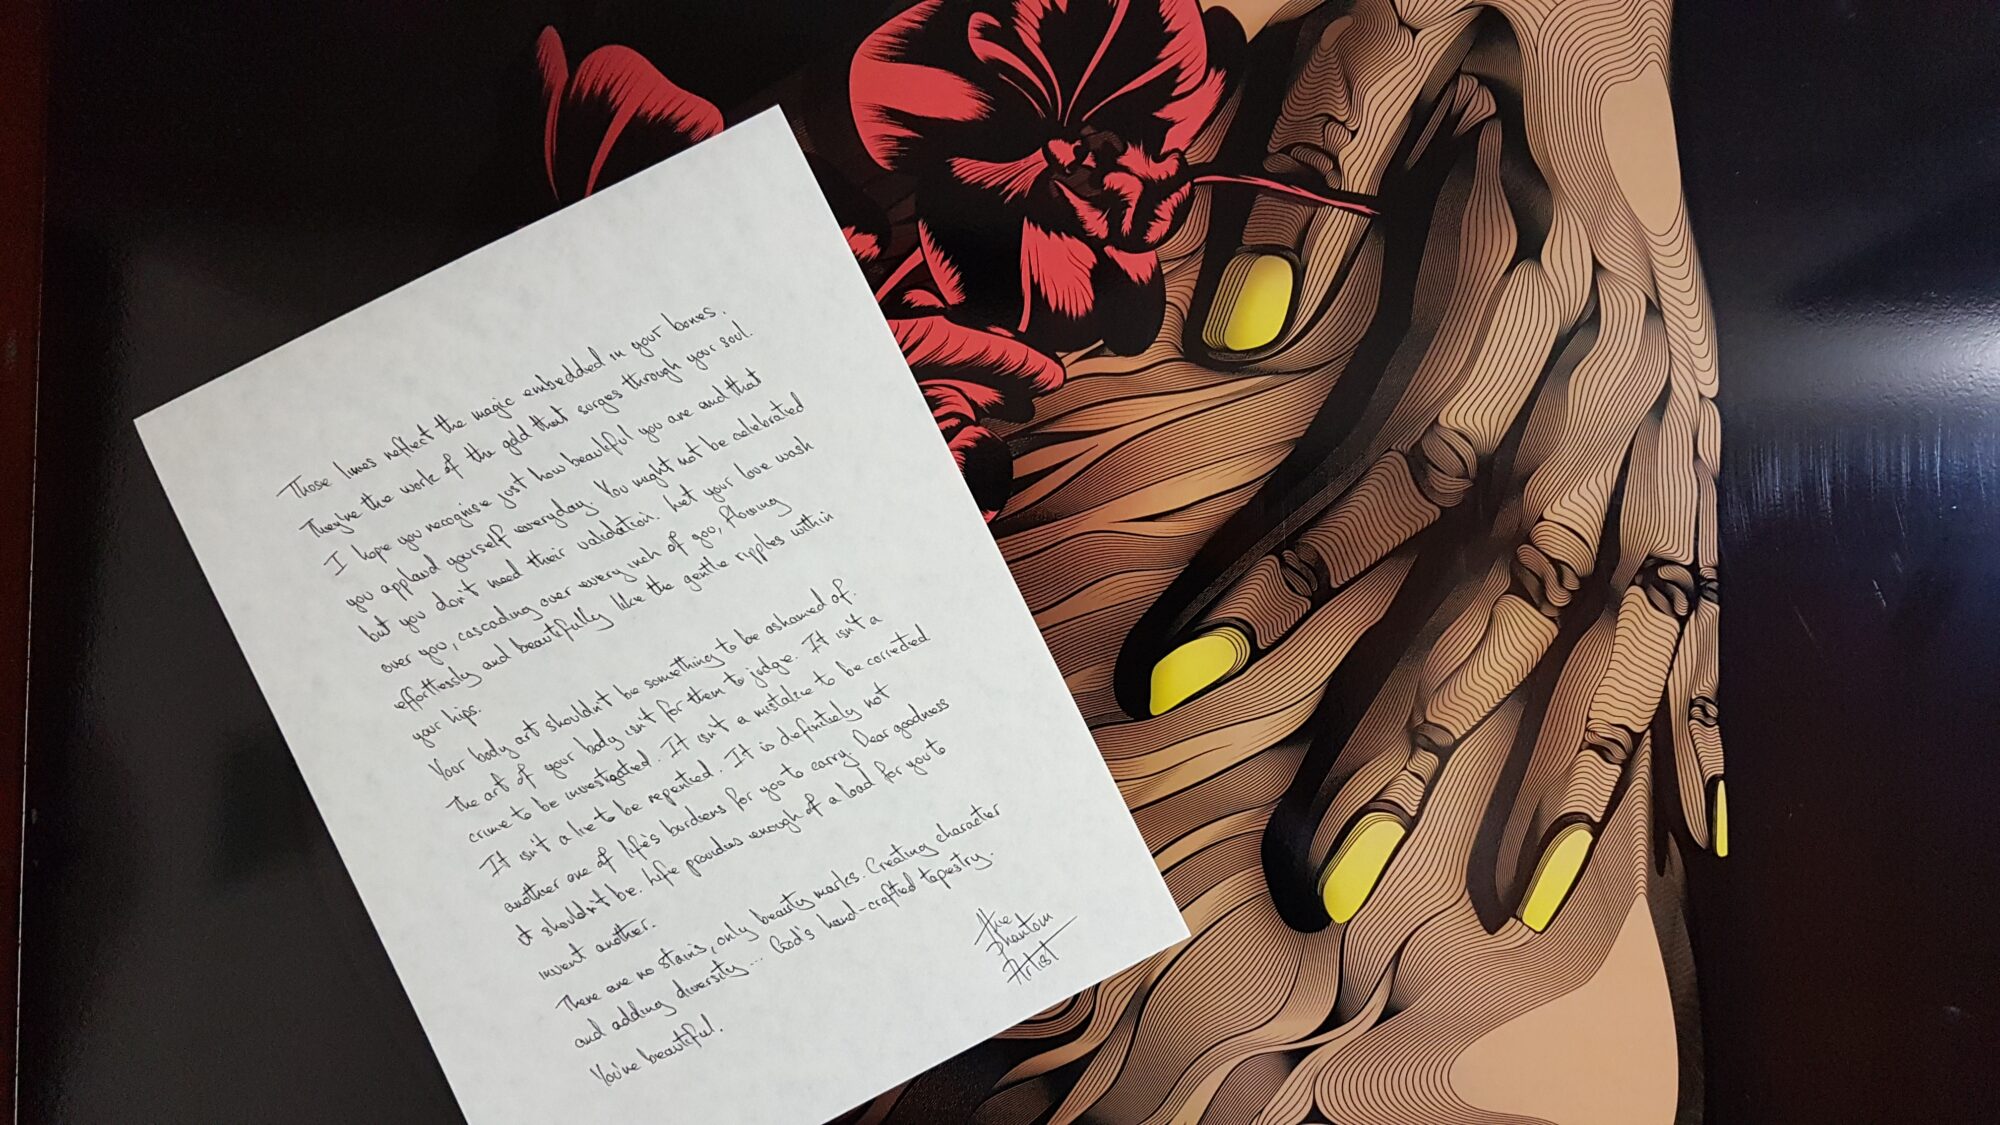 Those lines reflect the magic embedded in your bones.
They're the work of the gold that surges through your soul.
I hope you recognise just how beautiful you are and that
you applaud yourself everyday. You might not be celebrated
but you don't need their validation. Let your love wash
over you, cascading over every inch of you, flowing
effortlessly and beautifully like the gentle ripples within
your hips.
Your body art shouldn't be something to be ashamed of.
The art of your body isn't for them to judge. It isn't a
crime to be investigated. It isn't a mistake to be corrected
It isn't a lie to be repented. It is definitely not
another one of life's burdens for you to carry. Dear goodness
it shouldn't be. Life provides enough of a load for you to
invent another.
There are no stains, only beauty marks. Creating character
and adding diversity... God's hand-crafted tapestry.
You're beautiful.
The
Phantom
Artist